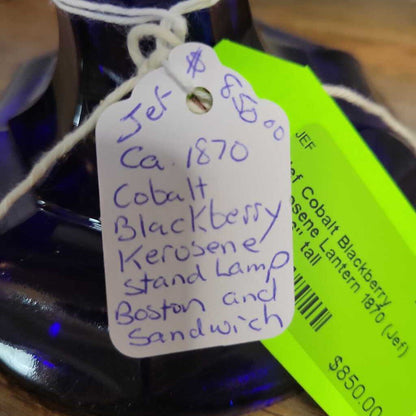 Jef $850.00
Ca. 1870
Cobalt
Blackberry
Kerosene
Stand Lamp
Boston and
Sandwich
JEF
Jef Cobalt Blackberry
Kerosene Lantern 1870 (Jef)
" tall
$850.00